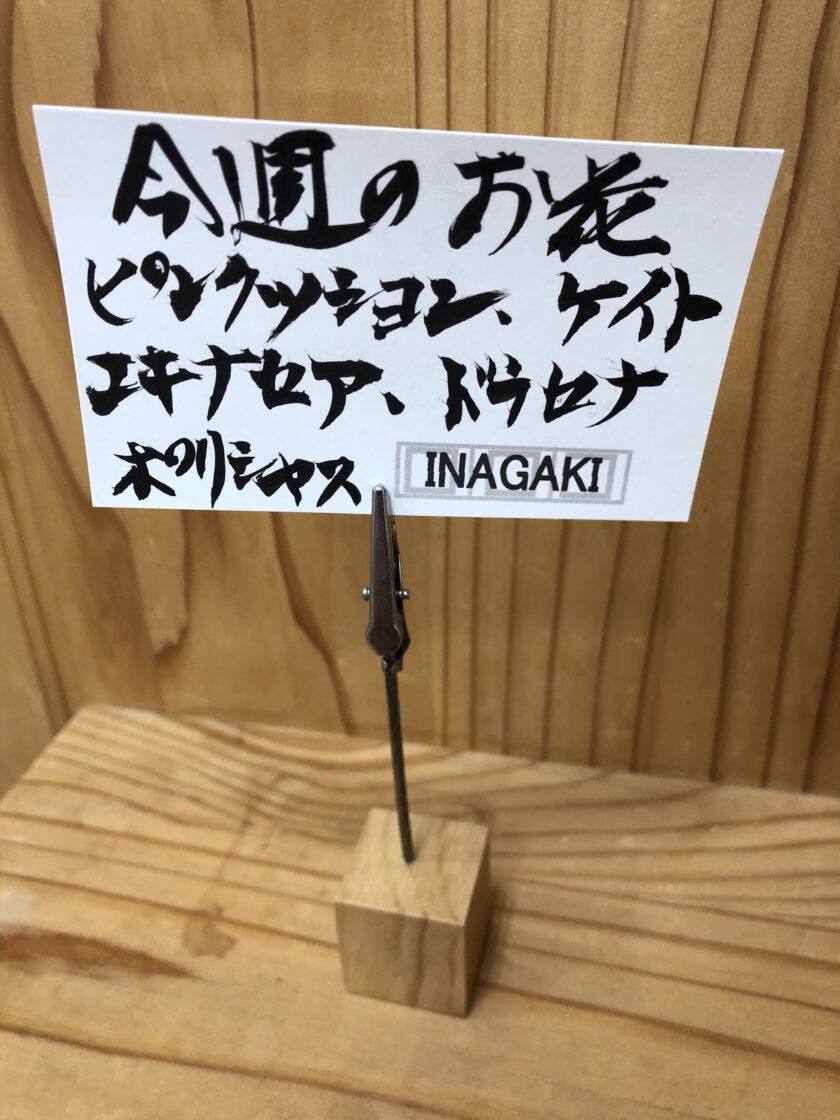 今週のお花
ピンクッション、ケイト
エキナセア、ドラセナ
ポリシャス INAGAKI